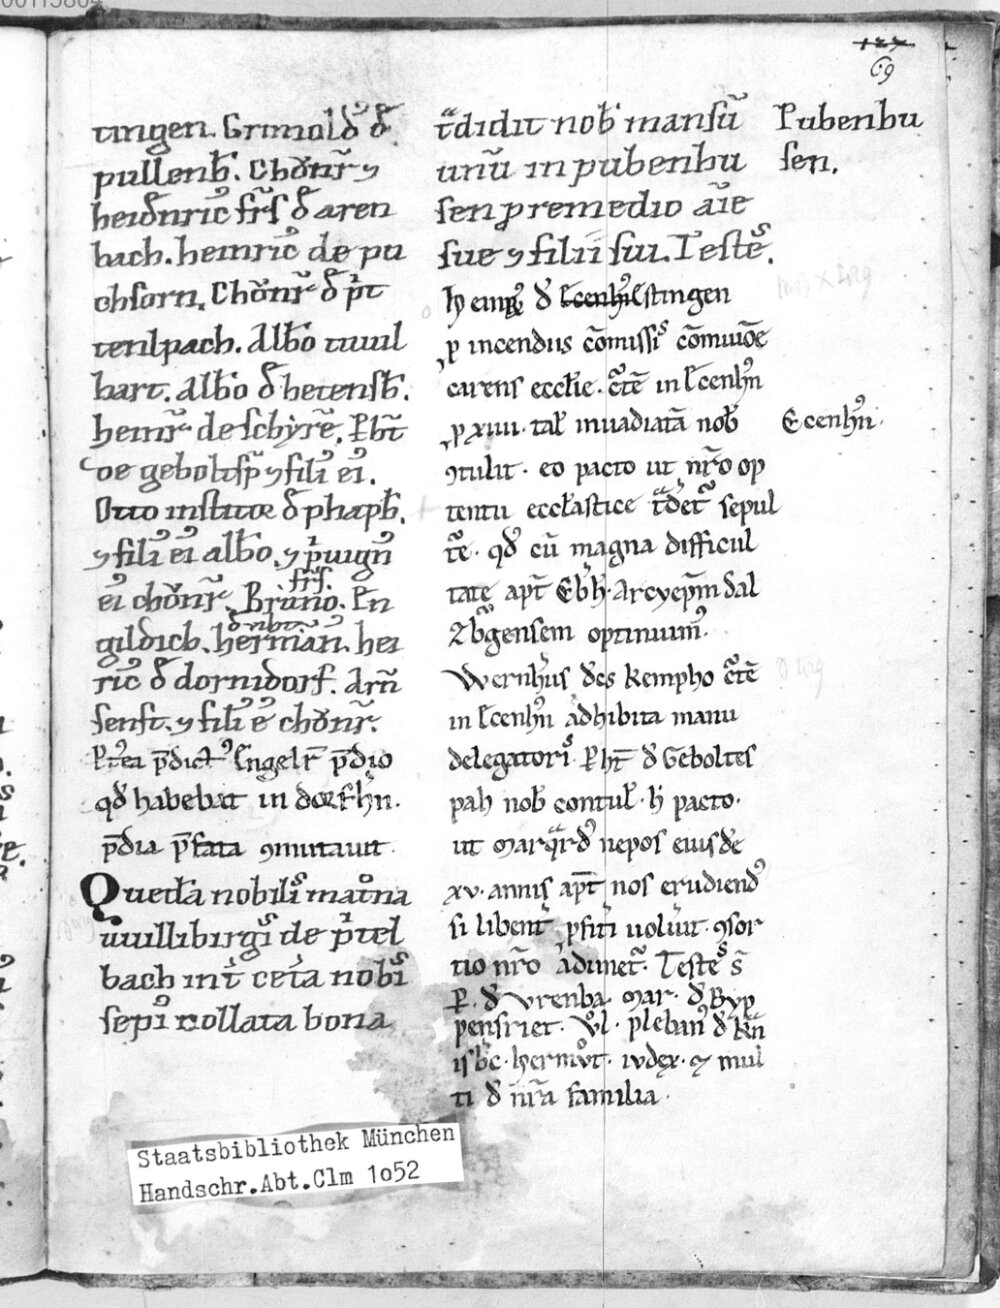 00115804
127
69
tingen. Grimold d̄
pullenb̄. Chōnr̄ ⁊
heidn̄ric᷒ fr̄s d̄ aren
bach. heinric᷒ de pu
chsorn. Chōnr̄ d̄ p̄t
tenlpach. Alb̄o
hart. Alb̄o d̄ hetensb̄.
heinr̄ de schẏrē. P̄bt̄
⁊ fili᷒ ei᷒.
Otto institor d̄ phapb̄.
⁊ fili᷒ ei᷒ alb̄o. ⁊ p̄uign᷒
fr̄s.
ei᷒ chōnr̄. Bruno. En
gildich. herman᷒. hei
ric᷒ d̄ dornidorf. Arn̄
⁊ fili᷒ e᷒ chōnr̄.
p̄dict᷒ Engelr̄ p̄dio
qd̄ habebat in dorfhn̄.
p̄dia p̄fata ꝯmutauit.
Qued̄a nobilis matͦna
wllibirgis de p̄tel
bach int̄ cet̄a nobis
sepi᷒ collata bona
t̄didit nob̄ mansū
unū in pubenhu
sen ꝑ remedio aīe
sue ⁊ filii sui. Testes.
d̄ Ecenhn̄ Estingen
ꝑ incendiis cōmissis cōmuiōe
carens eccl̄ie. c̄tē in Ecenhn̄
ꝑ xiiii. tal̄ inuadiatā nob̄
ꝯtulit. eo pacto ut nr̄o op
tentu eccl̄astice t̄det̄ sepul
t̄e. qd̄ cū magna difficul
tate apt̄ Ebh̄. Arcyep̄m Sal
zb̄gensem optinuim᷒.
Wernh̄us d̄cs Kempho c̄tē
in Ecenhn̄ adhibita manu
delegatoris. P̄ht̄ d̄ Geboltes
pah nob̄ contul̄. h̄ pacto.
ut Marqrd᷒ nepos eiusdē
xv. annis apt̄ nos erudiend᷒
si libent̄ ꝓfit̄i uolūit. ꝯsor
tio nr̄o adiunet̄. Testes s̄
P̄. d̄ Vrenba. Mar. d̄ Byp
pensriet. Vͦl. pleban᷒ d̄ Kn̄
hermͦt. iudex. ⁊ mul
ti d̄ nr̄a familia.
Pubenhu
sen.
Ecenhn̄.
Staatsbibliothek München
Handschr.Abt.Clm 1o52